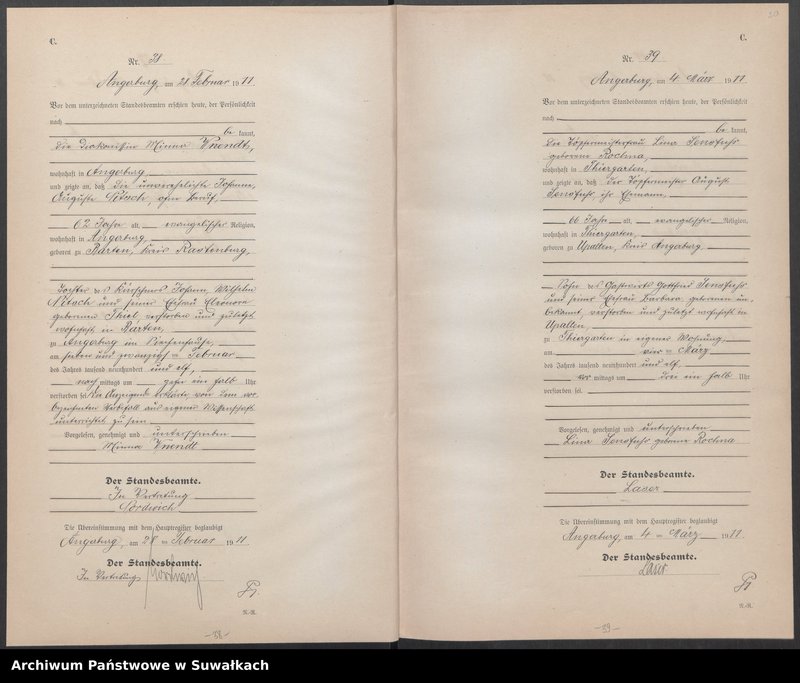 C.
Nr. 38
Angerburg, am 28 Februar 1911.
Vor dem unterzeichneten Standesbeamten erschien heute, der Persönlichkeit
nach
be kannt,
die Diakonissin Minna
wohnhaft in Angerburg
und zeigte an, daß die unverehelichte Johanne,
Auguste ohne Beruf,
62 Jahre alt, evangelischer Religion,
wohnhaft in Angerburg
geboren zu Barten, Kreis Rastenburg,
Tochter des Kürschners Johann, Wilhelm
und seiner Ehefrau Eleonore
geborenen Thiel, verstorben und zuletzt
wohnhaft in Barten,
zu Angerburg im Siechenhause,
am sieben und zwanzigsten Februar
des Jahres tausend neunhundert und elf,
nach mittags um ein halb Uhr
verstorben sei. Die Anzeigende erklärte, von dem vor
bezeichneten Sterbefall aus eigener Wissenschaft
unterrichtet zu sein.
Vorgelesen, genehmigt und unterschrieben
Minna
Der Standesbeamte.
In Vertretung
Die Übereinstimmung mit dem Hauptregister beglaubigt
Angerburg, am 28 ten Februar 1911
Der Standesbeamte.
In Vertretung
N.-R.
—38—
C.
Nr. 39
Angerburg, am 4 März 1911
Vor dem unterzeichneten Standesbeamten erschien heute, der Persönlichkeit
nach
be kannt,
die Töpfermeisterfrau Lina
geborene Rochna,
wohnhaft in Thiergarten,
und zeigte an, daß der Töpfermeister August
ihr Ehemann,
66 Jahre alt, evangelischer Religion,
wohnhaft in Thiergarten,
geboren zu Upalten, Kreis Angerburg
Sohn des Gastwirts Gottfried
und seiner Ehefrau Barbara geborenen un
bekannt, verstorben und zuletzt wohnhaft in
Upalten,
zu Thiergarten in eigener Wohnung,
am vier ten März
des Jahres tausend neunhundert und elf,
vor mittags um drei ein halb Uhr
verstorben sei.
Vorgelesen, genehmigt und unterschrieben
Lina geborene Rochna
Der Standesbeamte.
Laser
Die Übereinstimmung mit dem Hauptregister beglaubigt
Angerburg, am 4 ten März 1911.
Der Standesbeamte.
Laser
N.-R.
—39—
Archiwum Państwowe w Suwałkach